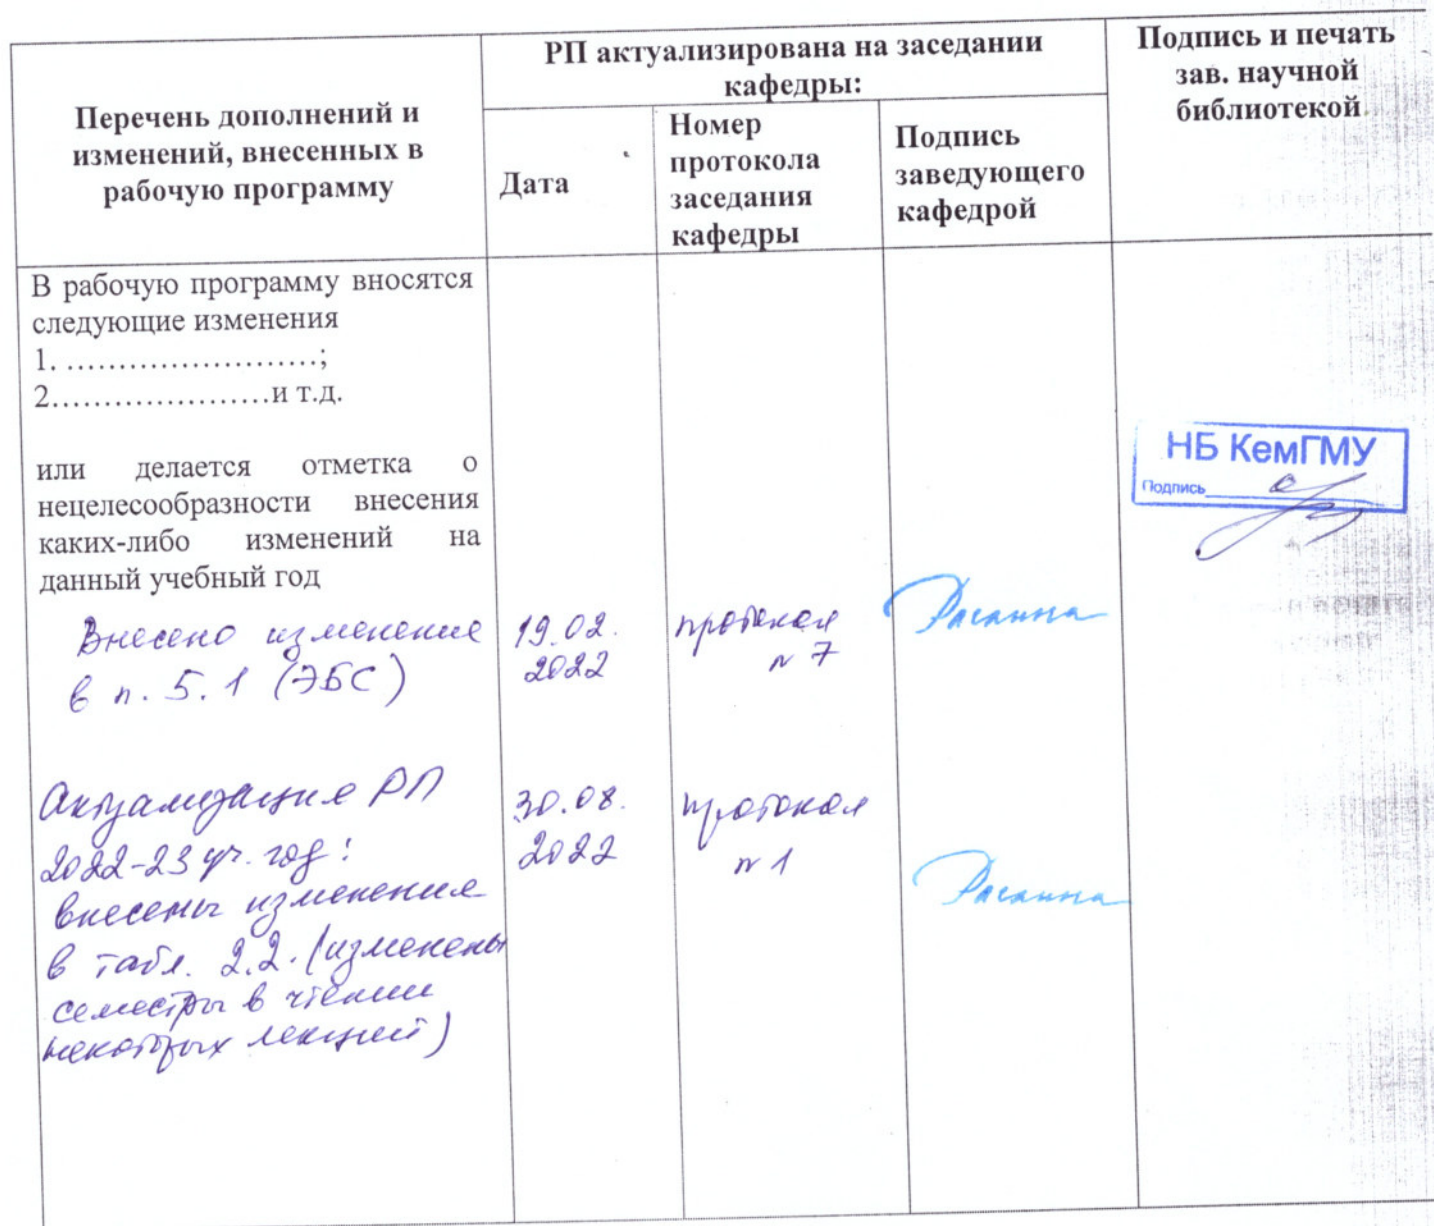 Перечень дополнений и
изменений, внесенных в
рабочую программу
РП актуализирована на заседании
кафедры:
Дата
Номер
протокола
заседания
кафедры
Подпись
заведующего
кафедрой
Подпись и печать
зав. научной
библиотекой
В рабочую программу вносятся
следующие изменения
1. ........................;
2.....................и т.д.
или делается отметка о
нецелесообразности внесения
каких-либо изменений на
данный учебный год
НБ КемГМУ
Подпись
Внесено изменение
в п. 5.1 (ЭБС)
19.02.
2022
протокол
№ 7
Актуализация РП
2022-23 уч. год:
внесены изменения
в табл. 2.2. (изменены
семестры в чтении
некоторых лекций)
30.08.
2022
протокол
№ 1